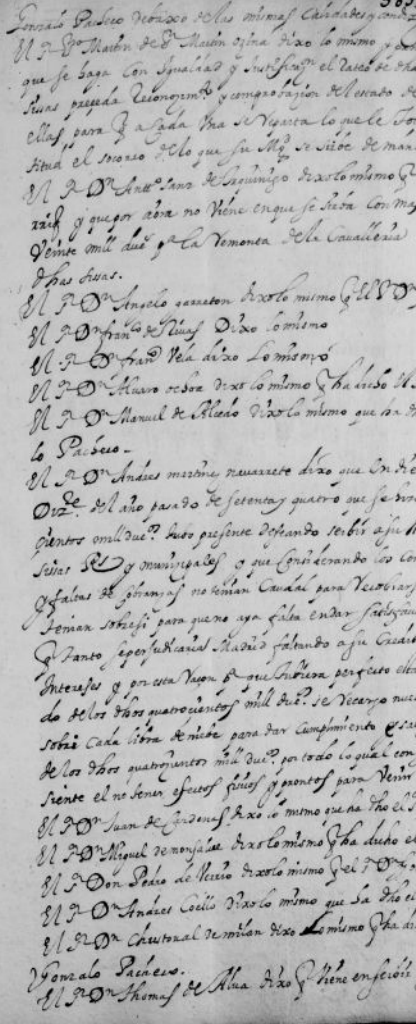 Gonzalo Pacheco debaxo de las mismas Calidades y condi
El Sr Dn Martin de Sn Martin ojina dixo lo mismo y
que se haga Con igualdad y Justificon el rateo de dha
sissas preceda Reconozimto y comprobazion del estado de
ellas para q a Cada una se Reparta lo que le
titud el socorro de lo que su Mgd se sirbe de man
El Sr Dn Sanz de dixo lo mismo q
y que por aora no Viene en que se sirba Con ma
Veinte mill dus pa la Remonta de la Cavalleria
dhas sissas.
El Sr Dn Angelo garreton dixo lo mismo q El Sr Dn
El Sr Dn franco de Rivas Dixo lo mismo
El Sr Dn franco Vela dixo Lo mismo
El Sr Dn Alvaro ochoa dixo lo mismo q ha dicho el S
El Sr Dn Manuel de Salcedo dixo lo mismo que ha d
lo Pacheco.
El Sr Dn Andres martinez navarrete dixo que en die
Dize del año pasado de setenta y quatro que se
zientos mill dus tubo presente deseando serbir a su M
sissas Rs y munizipales y que Considerando los
y faltas de Cobranzas no tenian Caudal para Recobrars
tenian sobre si para que no aya falta en dar satisfaz
q tanto se perjudicaria Madrid faltando a su Credi
Intereses y por esta Razon pa que tubiera perfecto esta
do de los dhos quatrozientos mill dus se Recargo
sobre Cada libra de niebe para dar Cumplimiento
de los dhos quatrozientos mill dus por todo lo qual con
siente el no tener efectos fixos y prontos para Venir
El Sr Dn Juan de Cardenas dixo lo mismo que ha dho el S
El Sr Dn Miguel de monsalve dixo lo mismo q ha dicho el
El Sr Don Pedro de dixo lo mismo q el Sr Dn
El Sr Dn Andres Coello Dixo lo mismo que ha dho el
El Sr Dn Christoval de milan dixo Lo mismo q ha di
Gonzalo Pacheco.
El Sr Dn Thomas de Alva dixo q Viene en serbir